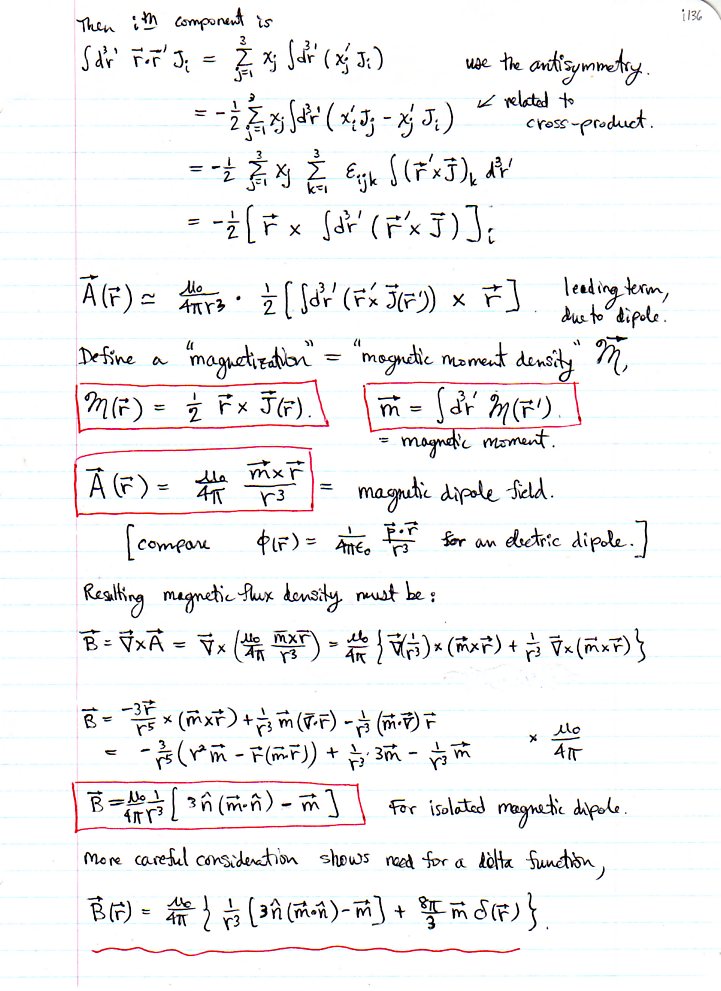 i136
Then ith component is
∫d³r' r⃗·r⃗' Jᵢ = Σ_{j=1}^{3} xⱼ ∫d³r' (x'ⱼ Jᵢ) use the antisymmetry.
= -½ Σ_{j=1}^{3} xⱼ ∫d³r' (x'ᵢ Jⱼ - x'ⱼ Jᵢ) ↙ related to cross-product.
= -½ Σ_{j=1}^{3} xⱼ Σ_{k=1}^{3} ε_{ijk} ∫(r⃗'×J⃗)ₖ d³r'
= -½ [r⃗ × ∫d³r' (r⃗'×J⃗)]ᵢ
A⃗(r⃗) ≃ μ₀/4πr³ · ½ [∫d³r' (r⃗'×J⃗(r⃗')) × r⃗]. leading term, due to dipole.
Define a "magnetization" = "magnetic moment density" M⃗,
M(r⃗) = ½ r⃗ × J⃗(r⃗). m⃗ = ∫d³r' M(r⃗').
= magnetic moment.
A⃗(r⃗) = μ₀/4π (m⃗×r⃗)/r³ = magnetic dipole field.
[compare φ(r⃗) = 1/4πε₀ (p⃗·r⃗)/r³ for an electric dipole.]
Resulting magnetic flux density must be:
B⃗ = ∇⃗×A⃗ = ∇⃗×(μ₀/4π (m⃗×r⃗)/r³) = μ₀/4π {∇⃗(1/r³)×(m⃗×r⃗) + 1/r³ ∇⃗×(m⃗×r⃗)}
B⃗ = -3r⃗/r⁵ × (m⃗×r⃗) + 1/r³ m⃗(∇⃗·r⃗) - 1/r³ (m⃗·∇⃗) r⃗
= -3/r⁵ (r²m⃗ - r⃗(m⃗·r⃗)) + 1/r³·3m⃗ - 1/r³ m⃗ × μ₀/4π
B⃗ = μ₀/4π 1/r³ [3n̂(m⃗·n̂) - m⃗] For isolated magnetic dipole.
More careful consideration shows need for a delta function,
B⃗(r⃗) = μ₀/4π {1/r³ [3n̂(m⃗·n̂) - m⃗] + 8π/3 m⃗ δ(r⃗)}.